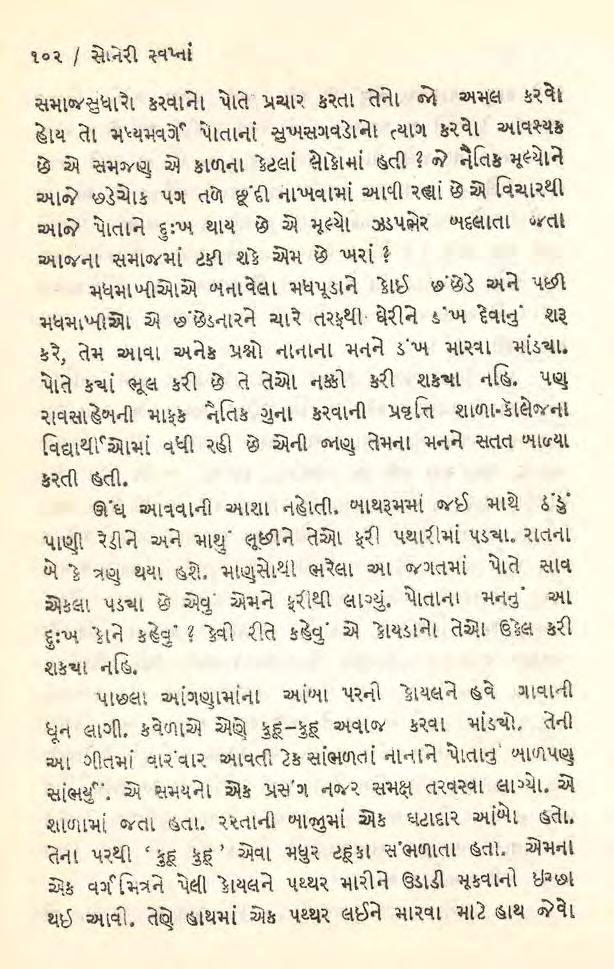 ૧૦૨ / સોનેરી સ્વપ્નાં
સમાજસુધારો કરવાનો પોતે પ્રચાર કરતા તેનો જો અમલ કરવો
હોય તો મધ્યમવર્ગે પોતાનાં સુખસગવડોનો ત્યાગ કરવો આવશ્યક
છે એ સમજણ એ કાળના કેટલાં લોકોમાં હતી ? જે નૈતિક મૂલ્યોને
આજે છડેચોક પગ તળે છૂંદી નાખવામાં આવી રહ્યાં છે એ વિચારથી
આજે પોતાને દુઃખ થાય છે એ મૂલ્યો ઝડપભેર બદલાતા જતા
આજના સમાજમાં ટકી શકે એમ છે ખરાં ?
મધમાખીઓએ બનાવેલા મધપૂડાને કોઈ છંછેડે અને પછી
મધમાખીઓ એ છંછેડનારને ચારે તરફથી ઘેરીને ડંખ દેવાનું શરૂ
કરે, તેમ આવા અનેક પ્રશ્નો નાનાના મનને ડંખ મારવા માંડયા.
પોતે કયાં ભૂલ કરી છે તે તેઓ નક્કી કરી શકયા નહિ. પણ
રાવસાહેબની માફક નૈતિક ગુના કરવાની પ્રવૃત્તિ શાળા-કૉલેજના
વિદ્યાર્થીઓમાં વધી રહી છે એની જાણ તેમના મનને સતત બાળ્યા
કરતી હતી.
ઊંઘ આવવાની આશા નહોતી. બાથરૂમમાં જઈ માથે ઠંડું
પાણી રેડીને અને માથું લૂછીને તેઓ ફરી પથારીમાં પડયા. રાતના
બે કે ત્રણ થયા હશે. માણસોથી ભરેલા આ જગતમાં પોતે સાવ
એકલા પડયા છે એવું એમને ફરીથી લાગ્યું. પોતાના મનનું આ
દુઃખ કોને કહેવું ? કેવી રીતે કહેવું એ કોયડાનો તેઓ ઉકેલ કરી
શકયા નહિ.
પાછલા આંગણામાંના આંબા પરની કોયલને હવે ગાવાની
ધૂન લાગી. કવેળાએ એણે કુહૂ-કુહૂ અવાજ કરવા માંડયો. તેની
આ ગીતમાં વારંવાર આવતી ટેક સાંભળતાં નાનાને પોતાનું બાળપણ
સાંભર્યું. એ સમયનો એક પ્રસંગ નજર સમક્ષ તરવરવા લાગ્યો. એ
શાળામાં જતા હતા. રસ્તાની બાજુમાં એક ઘટાદાર આંબો હતો.
તેના પરથી ‘ કુહૂ કુહૂ ’ એવા મધુર ટહૂકા સંભળાતા હતા. એમના
એક વર્ગમિત્રને પેલી કોયલને પથ્થર મારીને ઉડાડી મૂકવાની ઇચ્છા
થઈ આવી. તેણે હાથમાં એક પથ્થર લઈને મારવા માટે હાથ જેવો